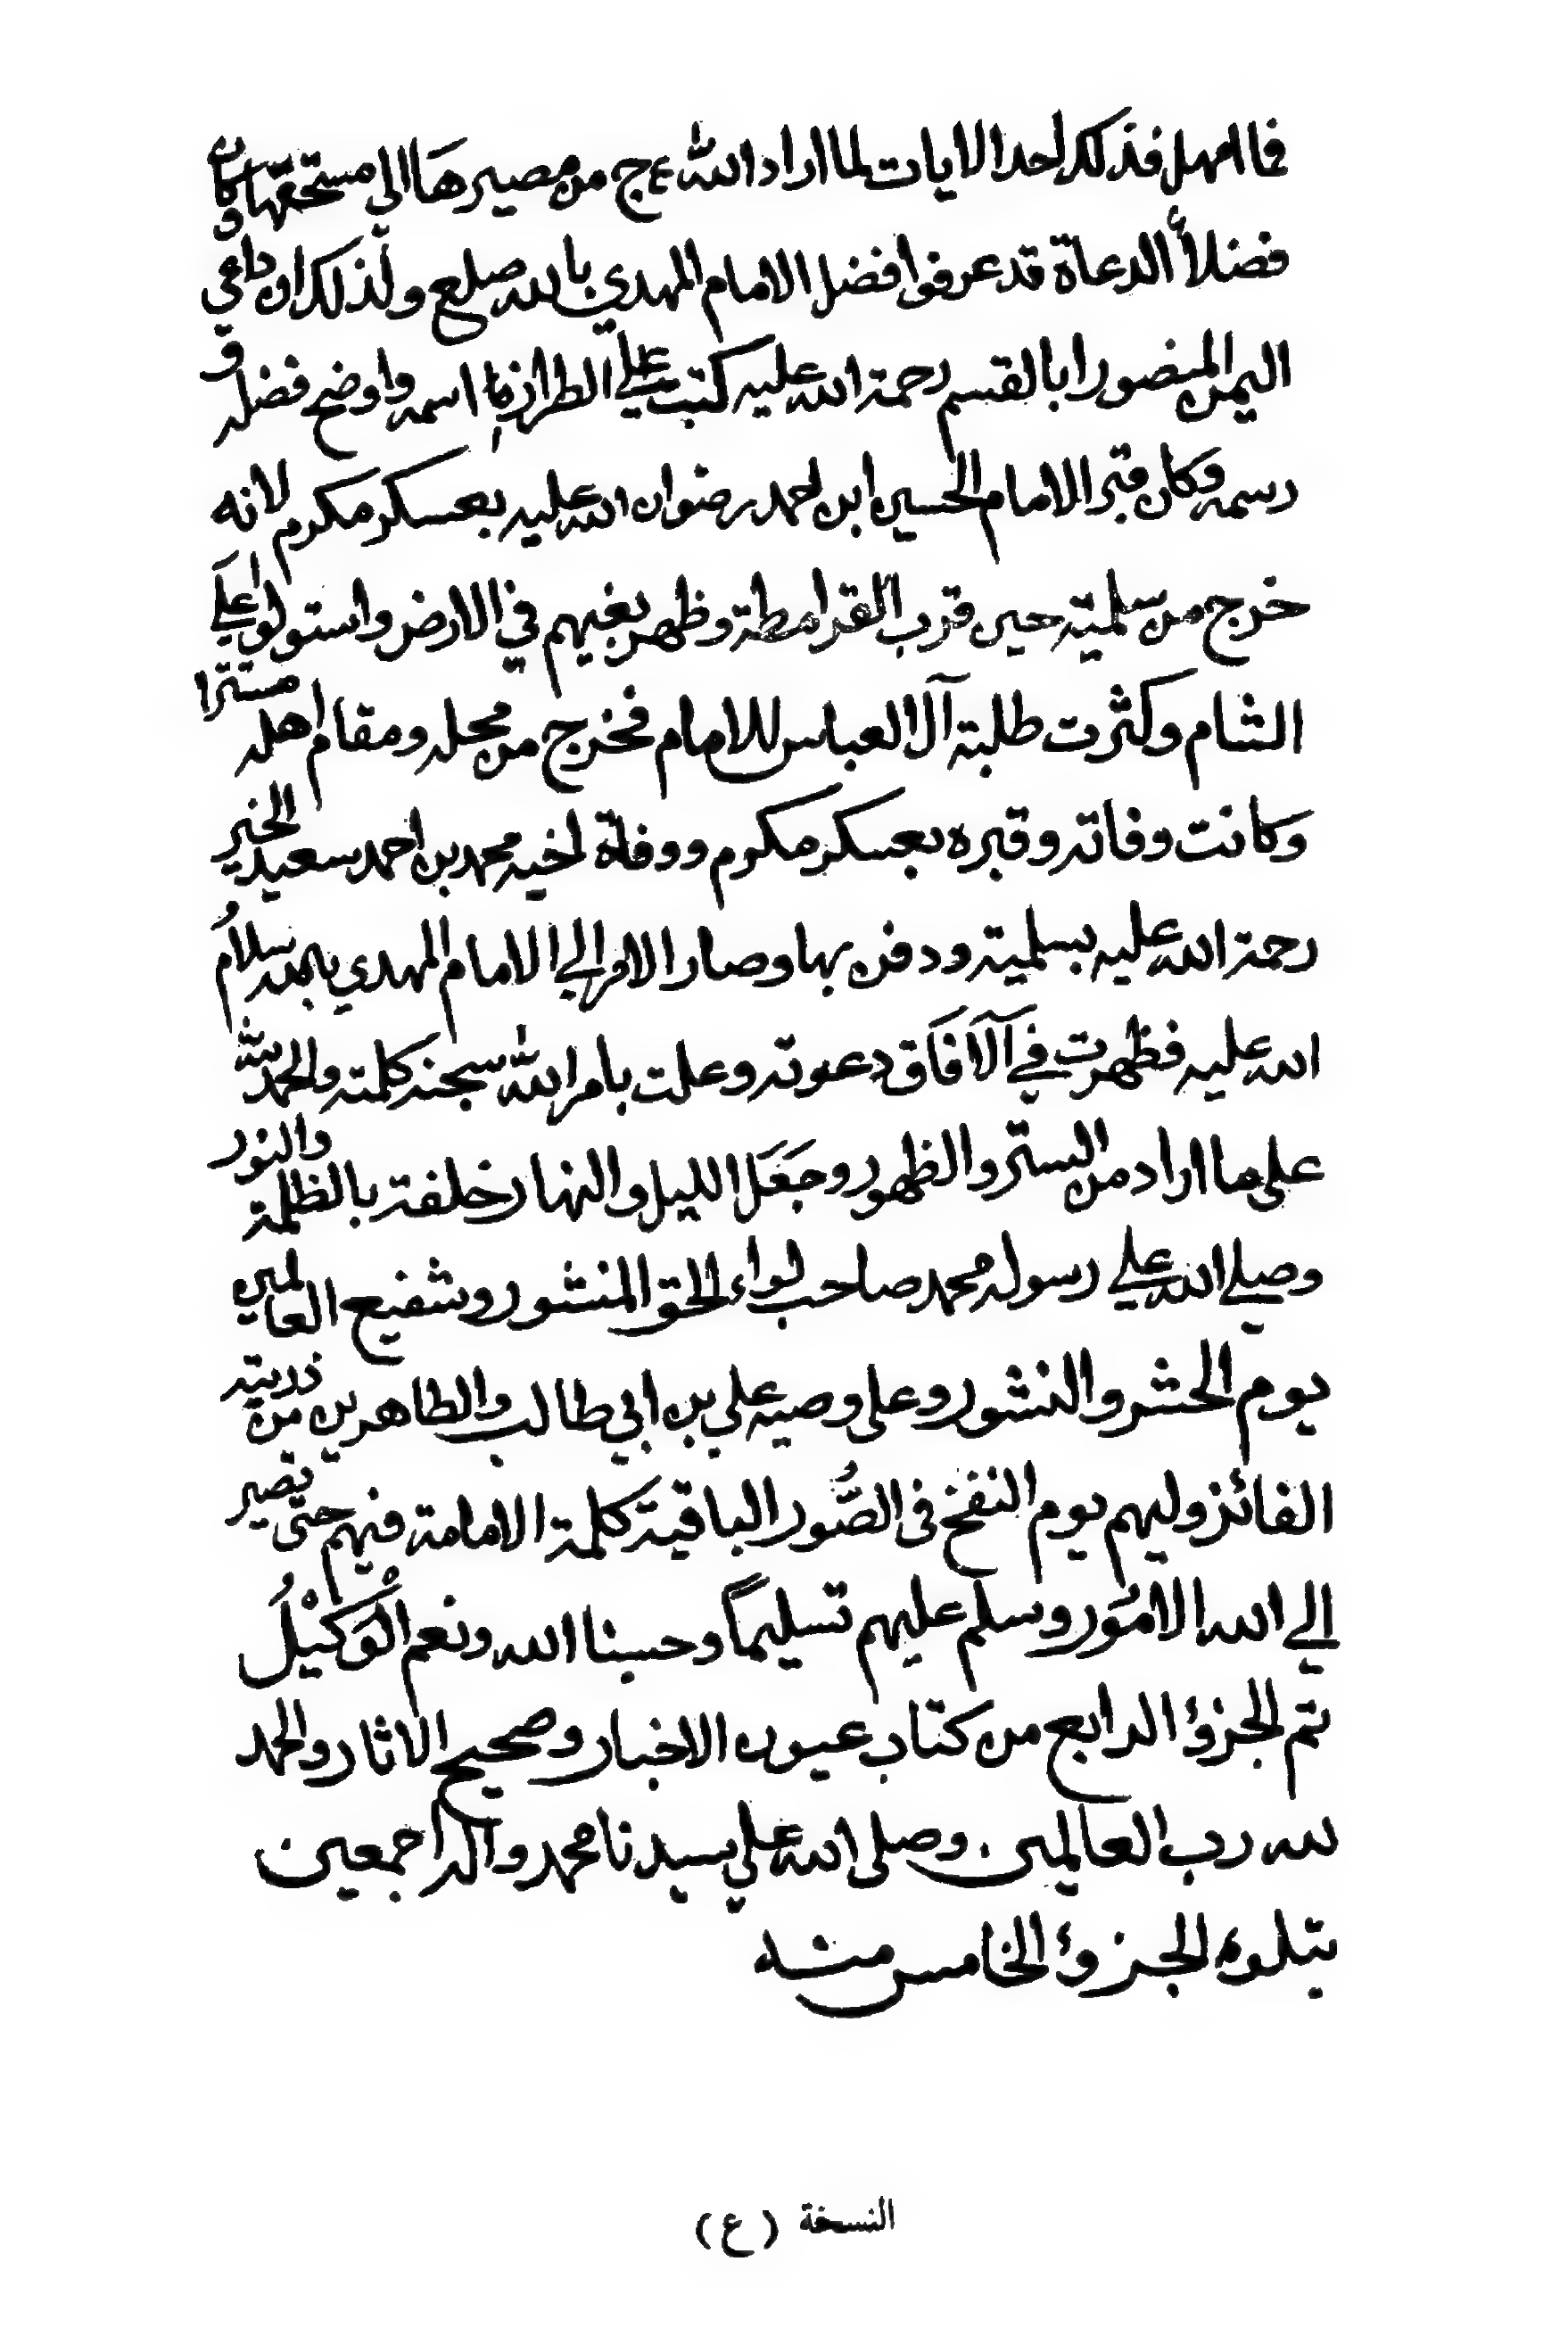 فما امهل فذلك احد الايات لما اراد الله ع ج من مصيرها الي مستحقها وكان
فضلأ الدعاة قد عرفوا فضل الامام المهدي بالله صلع ولذلك ان داعي
اليمن المنصور ابا القسم رحمة الله عليه كتب علي الطراز اسمه واوضح فضله و
رسمه وكان قبر الامام الحسين ابن احمد رضوان الله عليه بعسكر مكرم لانه
خرج من سلمية حين قرب القرامطة وظهر بغيهم في الارض واستولوا علي
الشام وكثرت طلبة آل العباس للامام فخرج من محله ومقام اهله مستترا
وكانت وفاته وقبره بعسكر مكرم ووفاة اخيه محمد بن احمد سعيد الخير
رحمة الله عليه بسلمية ودفن بها وصار الامر الي الامام المهدي بالله سلامُ
الله عليه فظهرت في آلآفاق دعوته وعلت بامر الله سبحنه كلمته والحمد لله
على ما اراد من الستر والظهور وجَعَل الليل والنهار خلفة بالظلمة والنور
وصلي الله علي رسوله محمد صاحب لواء الحق المنشور وشفيع العالمين
يوم الحشر والنشور وعلى وصيه علي بن ابي طالب والطاهرين من ذريته
الفائز وليهم يوم النفخ فى الصُّور الباقية كلمة الامامة فيهم حتى تصير
الي الله الامُور وسلم عليهم تسليماً وحسبنا الله ونعم الْوَكيْلُ
تم الجزؤ الرابع من كتاب عيون الاخبار وصحيح الاثار والحمد
لله رب العالمين وصلى الله علي سيدنا محمد واله اجمعين
يتلوه الجزؤ الخامس منه
النسخة (ع)